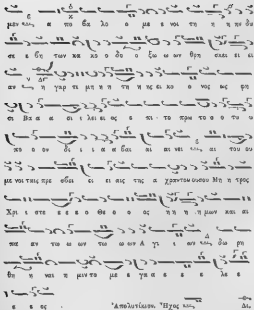 μεν και α πο βα λο ο με ε νοι τη η η ην δυ
σε ε θη των κα κο ο δο ο ξω ων θρη σκει ει ει
αν και η γαρ τε μη η η τη η ης ει κο ο νος ως φη
σι Βα α α σι ι λει ει ος ε πι το πρω το ο ο τυ υ
πο ο ον δι ι ι α βαι αι αι νει και αι του ου
με νοι ταις πρε σβει ει ει αις της α χραν του ου σου Μη η τρος
Χρι ι στε ε ε ε ο Θε ο ο ος η η η μων και αι
πα αν τω ω ων τω ω ων Α γι ι ων και δω ρη
θη η ναι η μιν το με ε γα ε ε ε λε ε
ε ε ος . Ἀπολυτίκιον. Ἦχος Δι.